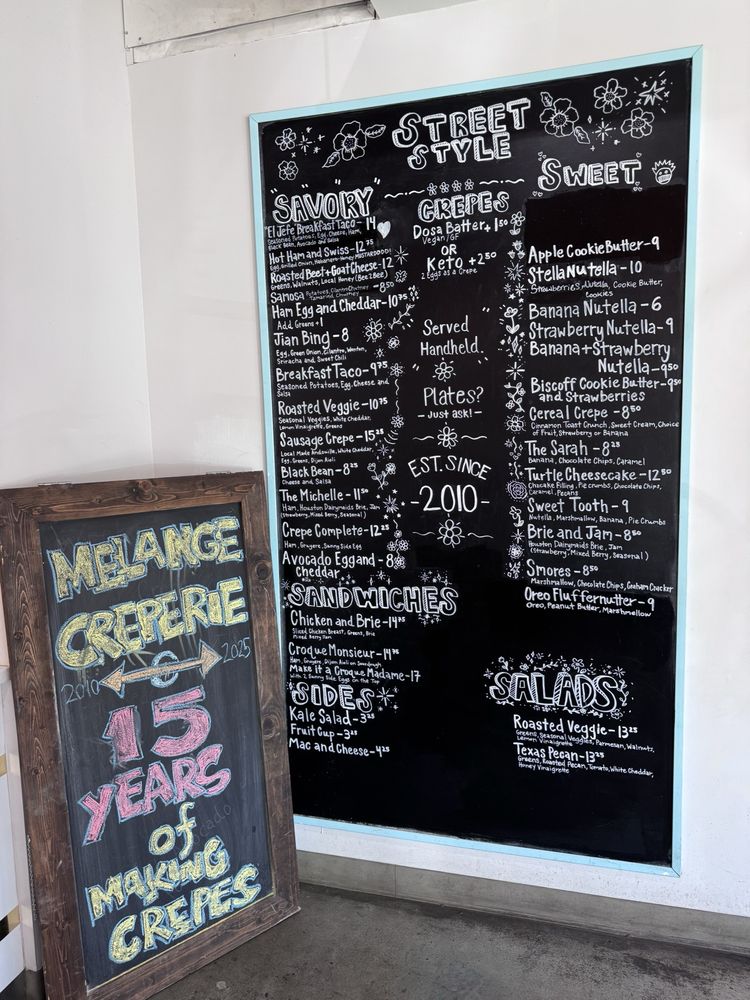 STREET
STYLE
"SAVORY"
"El Jefe Breakfast Taco - 14
Seasoned Potatoes, Egg, Cheese, Ham,
Black Bean, Avocado and Salsa
Hot Ham and Swiss - 12 75
Egg, Grilled Onion, Habanero Honey MUSTARDDDD!
Roasted Beet + Goat Cheese - 12
Greens, Walnuts, Local Honey (Bee2Bee)
Samosa Potatoes, Cilantro Chutney - 8 50
Tamarind Chutney
Ham Egg and Cheddar - 10 75
Add Greens + 1
Jian Bing - 8
Egg, Green Onion, Cilantro, Wonton,
Sriracha and Sweet Chili
Breakfast Taco - 9 75
Seasoned Potatoes, Egg, Cheese and
Salsa
Roasted Veggie - 10 75
Seasonal Veggies, White Cheddar,
Lemon Vinaigrette, Greens
Sausage Crepe - 15 25
Local Made Andouille, White Cheddar,
Egg, Greens, Dijon Aioli
Black Bean - 8 25
Cheese and Salsa
The Michelle - 11 50
Ham, Houston Dairymaids Brie, Jam
(Strawberry, Mixed Berry, Seasonal)
Crepe Complete - 12 25
Ham, Gruyere, Sunny Side Egg
Avocado Egg and - 8
Cheddar
SANDWICHES
Chicken and Brie - 14 75
Sliced Chicken Breast, Greens, Brie
Mixed Berry Jam
Croque Monsieur - 14 75
Ham, Gruyere, Dijon Aioli on Sourdough
Make it a Croque Madame - 17
with 2 Sunny Side Eggs on the Top
SIDES
Kale Salad - 3 25
Fruit Cup - 3 25
Mac and Cheese - 4 25
CREPES
Dosa Batter + 1 50
Vegan/GF
OR
Keto + 2 50
2 Eggs as a Crepe
Served
Handheld
Plates?
- Just ask! -
EST. SINCE
-2010-
"SWEET"
Apple Cookie Butter - 9
Stella Nutella - 10
Strawberries, Nutella, Cookie Butter,
Cookies
Banana Nutella - 6
Strawberry Nutella - 9
Banana + Strawberry
Nutella - 9 50
Biscoff Cookie Butter - 9 50
and Strawberries
Cereal Crepe - 8 50
Cinnamon Toast Crunch, Sweet Cream, Choice
of Fruit, Strawberry or Banana
The Sarah - 8 25
Banana, Chocolate Chips, Caramel
Turtle Cheesecake - 12 50
Chzcake Filling, Pie crumbs, Chocolate Chips,
Caramel, Pecans
Sweet Tooth - 9
Nutella, Marshmallow, Banana, Pie Crumbs
Brie and Jam - 8 50
Houston Dairymaids Brie, Jam
(Strawberry, Mixed Berry, Seasonal)
Smores - 8 50
Marshmallow, Chocolate Chips, Graham Cracker
Oreo Fluffernutter - 9
Oreo, Peanut Butter, Marshmallow
SALADS
Roasted Veggie - 13 25
Greens, Seasonal Veggies, Parmesan, Walnuts,
Lemon Vinaigrette
Texas Pecan - 13 25
Greens, Roasted Pecan, Tomato, White Cheddar,
Honey Vinaigrette
MELANGE
CREPERIE
2010 2025
15
YEARS
of
MAKING
CREPES